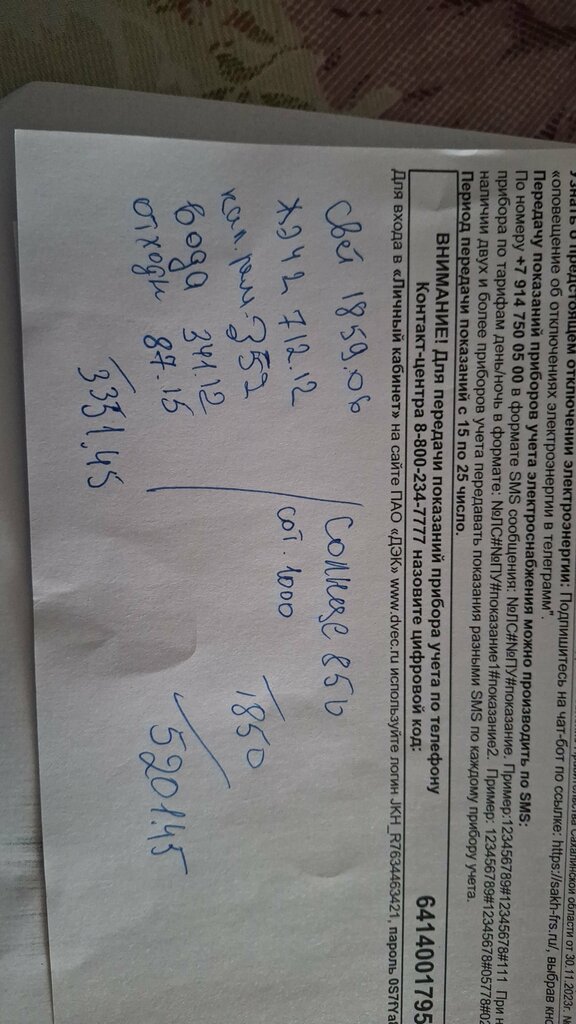 Узнать о предстоящем отключении электроэнергии: Подпишитесь на чат-бот по ссылке: https://sakh-frs.ru/, выбрав
«оповещение об отключениях электроэнергии в телеграмм".
Передачу показаний приборов учета электроснабжения можно производить по SMS:
По номеру +7 914 750 05 00 в формате SMS сообщения: №ЛС#№ПУ#показание, Пример:123456789#12345678#111 При
прибора по тарифам день/ночь в формате: №ЛС#№ПУ#показание1#показание2. Пример: 123456789#12345678#05778#02
наличии двух и более приборов учета передавать показания разными SMS по каждому прибору учета.
Период передачи показаний с 15 по 25 число.
ВНИМАНИЕ! Для передачи показаний прибора учета по телефону
Контакт-центра 8-800-234-7777 назовите цифровой код:
6414001795
Для входа в «Личный кабинет» на сайте ПАО «ДЭК» www.dvec.ru используйте логин JKH_R7634463421, пароль
Свет 1859.06
Солнце 856
ЖЭЧ2 712.12
сот. 1000
кап. рем. 352
1850
Вода 341.12
отходы 87.15
5201.45
3351,45